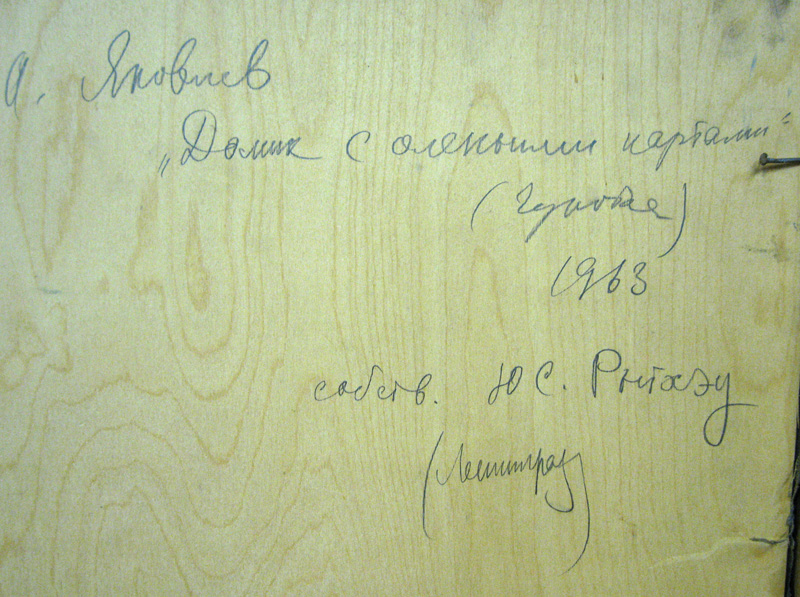 А. Яковлев
„Домик с оленьими нартами"
(Чукотка)
1963
собств. Ю С. Рытхэу
(Ленинград)